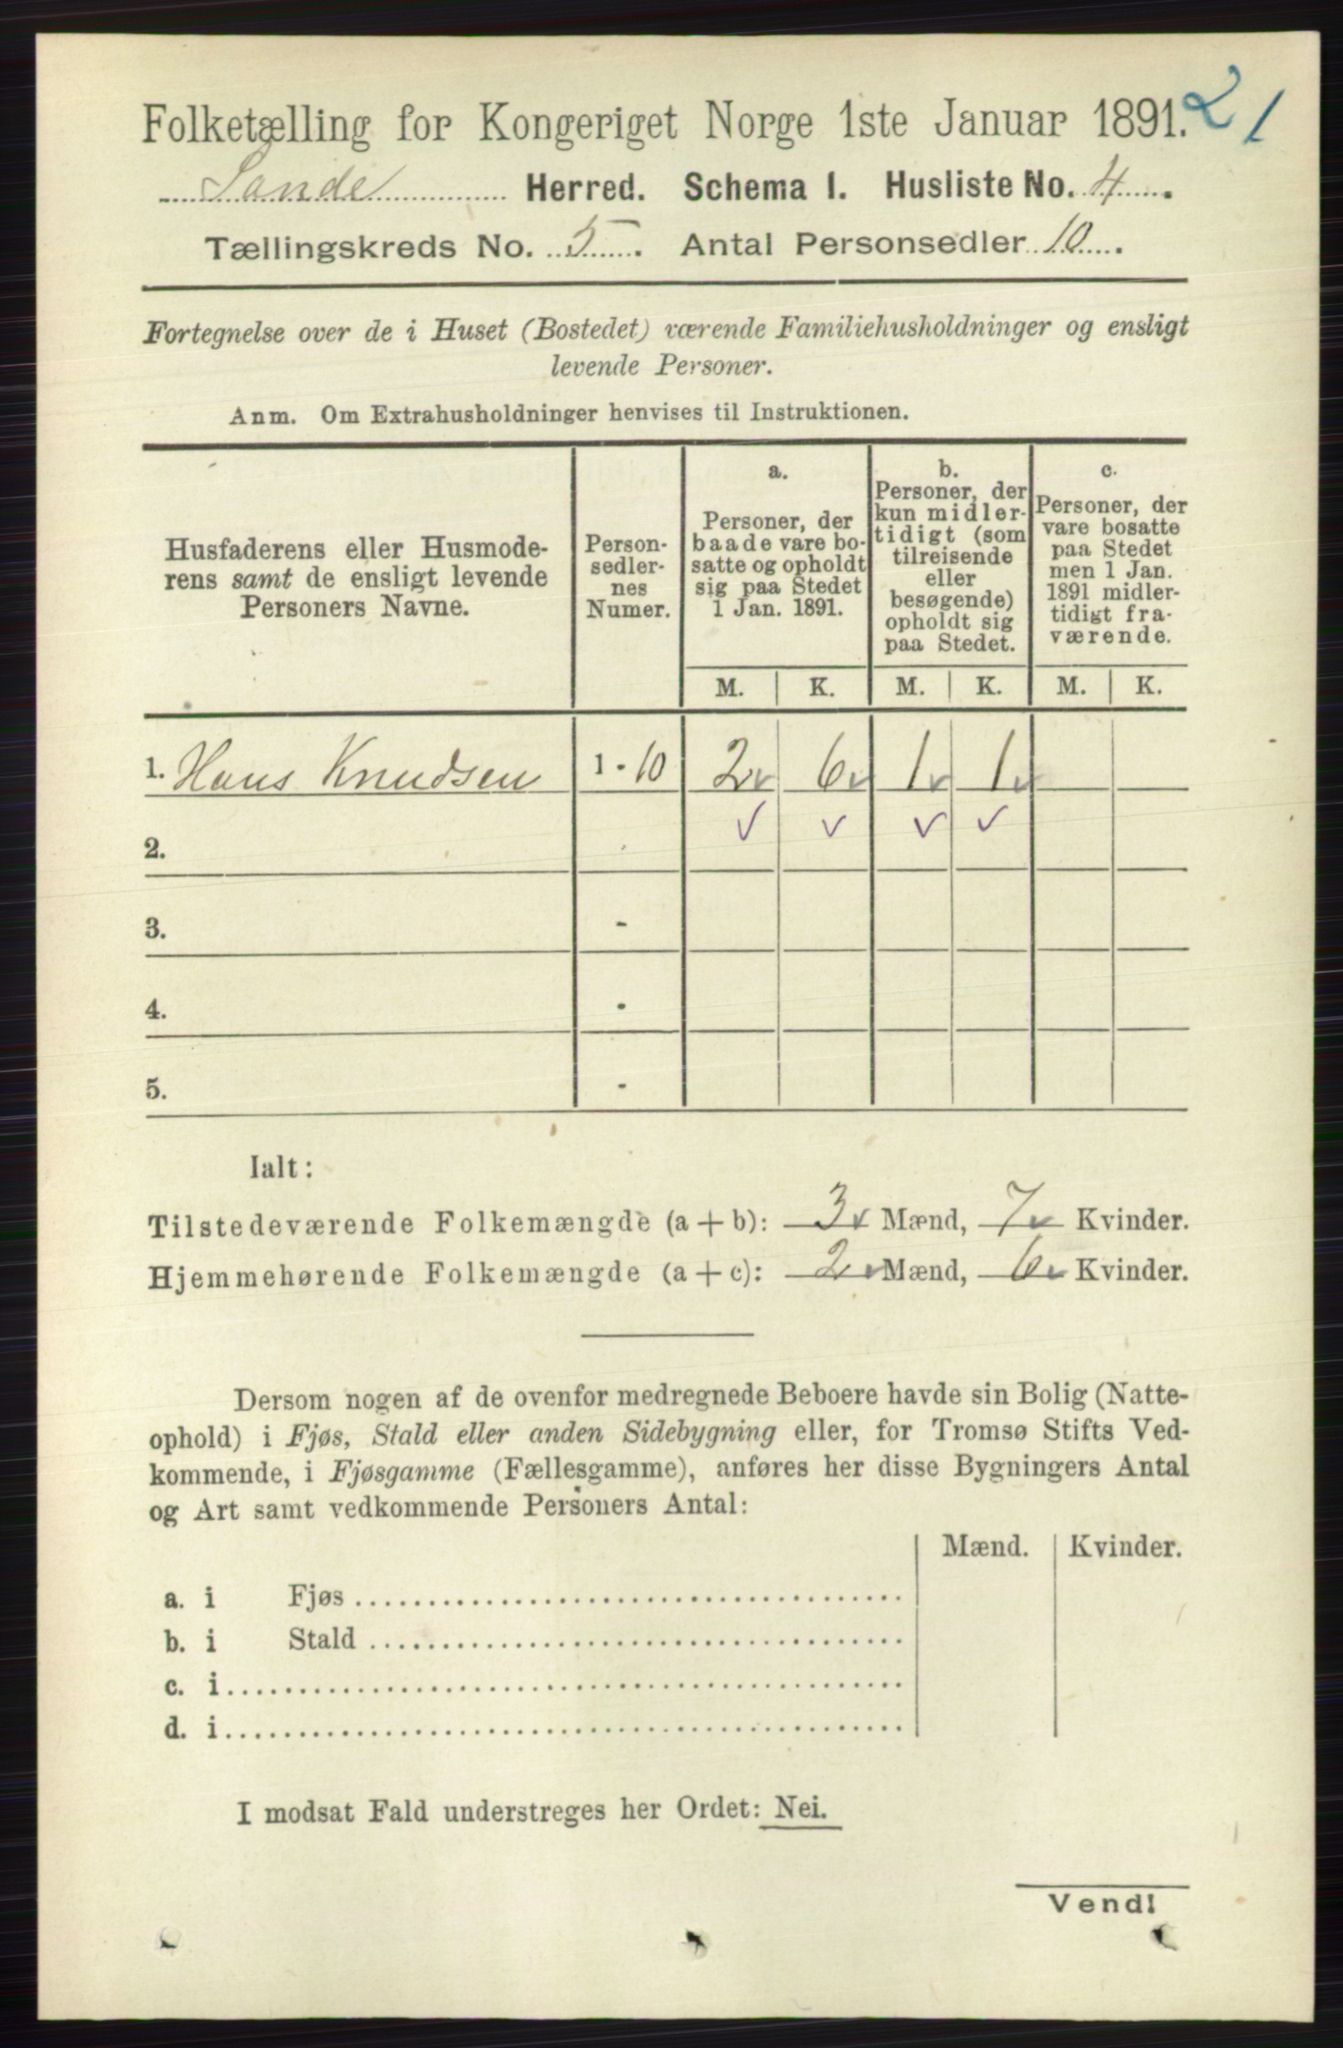 21
Folketælling for Kongeriget Norge 1ste Januar 1891.
Sande Herred. Schema 1. Husliste No. 4.
Tællingskreds No. 5. Antal Personsedler 10.
Fortegnelse over de i Huset (Bostedet) værende Familiehusholdninger og ensligt
levende Personer.
Anm. Om Extrahusholdninger henvises til Instruktionen.
Husfaderens eller Husmode-
rens samt de ensligt levende
Personers Navne.
Person-
sedler-
nes
Numer.
a.
Personer, der
baade vare bo-
satte og opholdt
sig paa Stedet
1 Jan. 1891.
b.
Personer, der
kun midler-
tidigt (som
tilreisende
eller
besøgende)
opholdt sig
paa Stedet.
c.
Personer, der
vare bosatte
paa Stedet
men 1 Jan.
1891 midler-
tidigt fra-
værende.
M. K. M. K. M. K.
1. Hans Knudsen 1 - 10 2v 6v 1v 1v
2. - ✓ ✓ ✓ ✓
3. -
4. -
5. -
Ialt:
Tilstedeværende Folkemængde (a + b): 3v Mænd, 7v Kvinder.
Hjemmehørende Folkemængde (a + c): 2v Mænd, 6v Kvinder.
Dersom nogen af de ovenfor medregnede Beboere havde sin Bolig (Natte-
ophold) i Fjøs, Stald eller anden Sidebygning eller, for Tromsø Stifts Ved-
kommende, i Fjøsgamme (Fællesgamme), anføres her disse Bygningers Antal
og Art samt vedkommende Personers Antal:
Mænd. Kvinder.
a. i Fjøs
b. i Stald
c. i
d. i
I modsat Fald understreges her Ordet: Nei.
Vend!